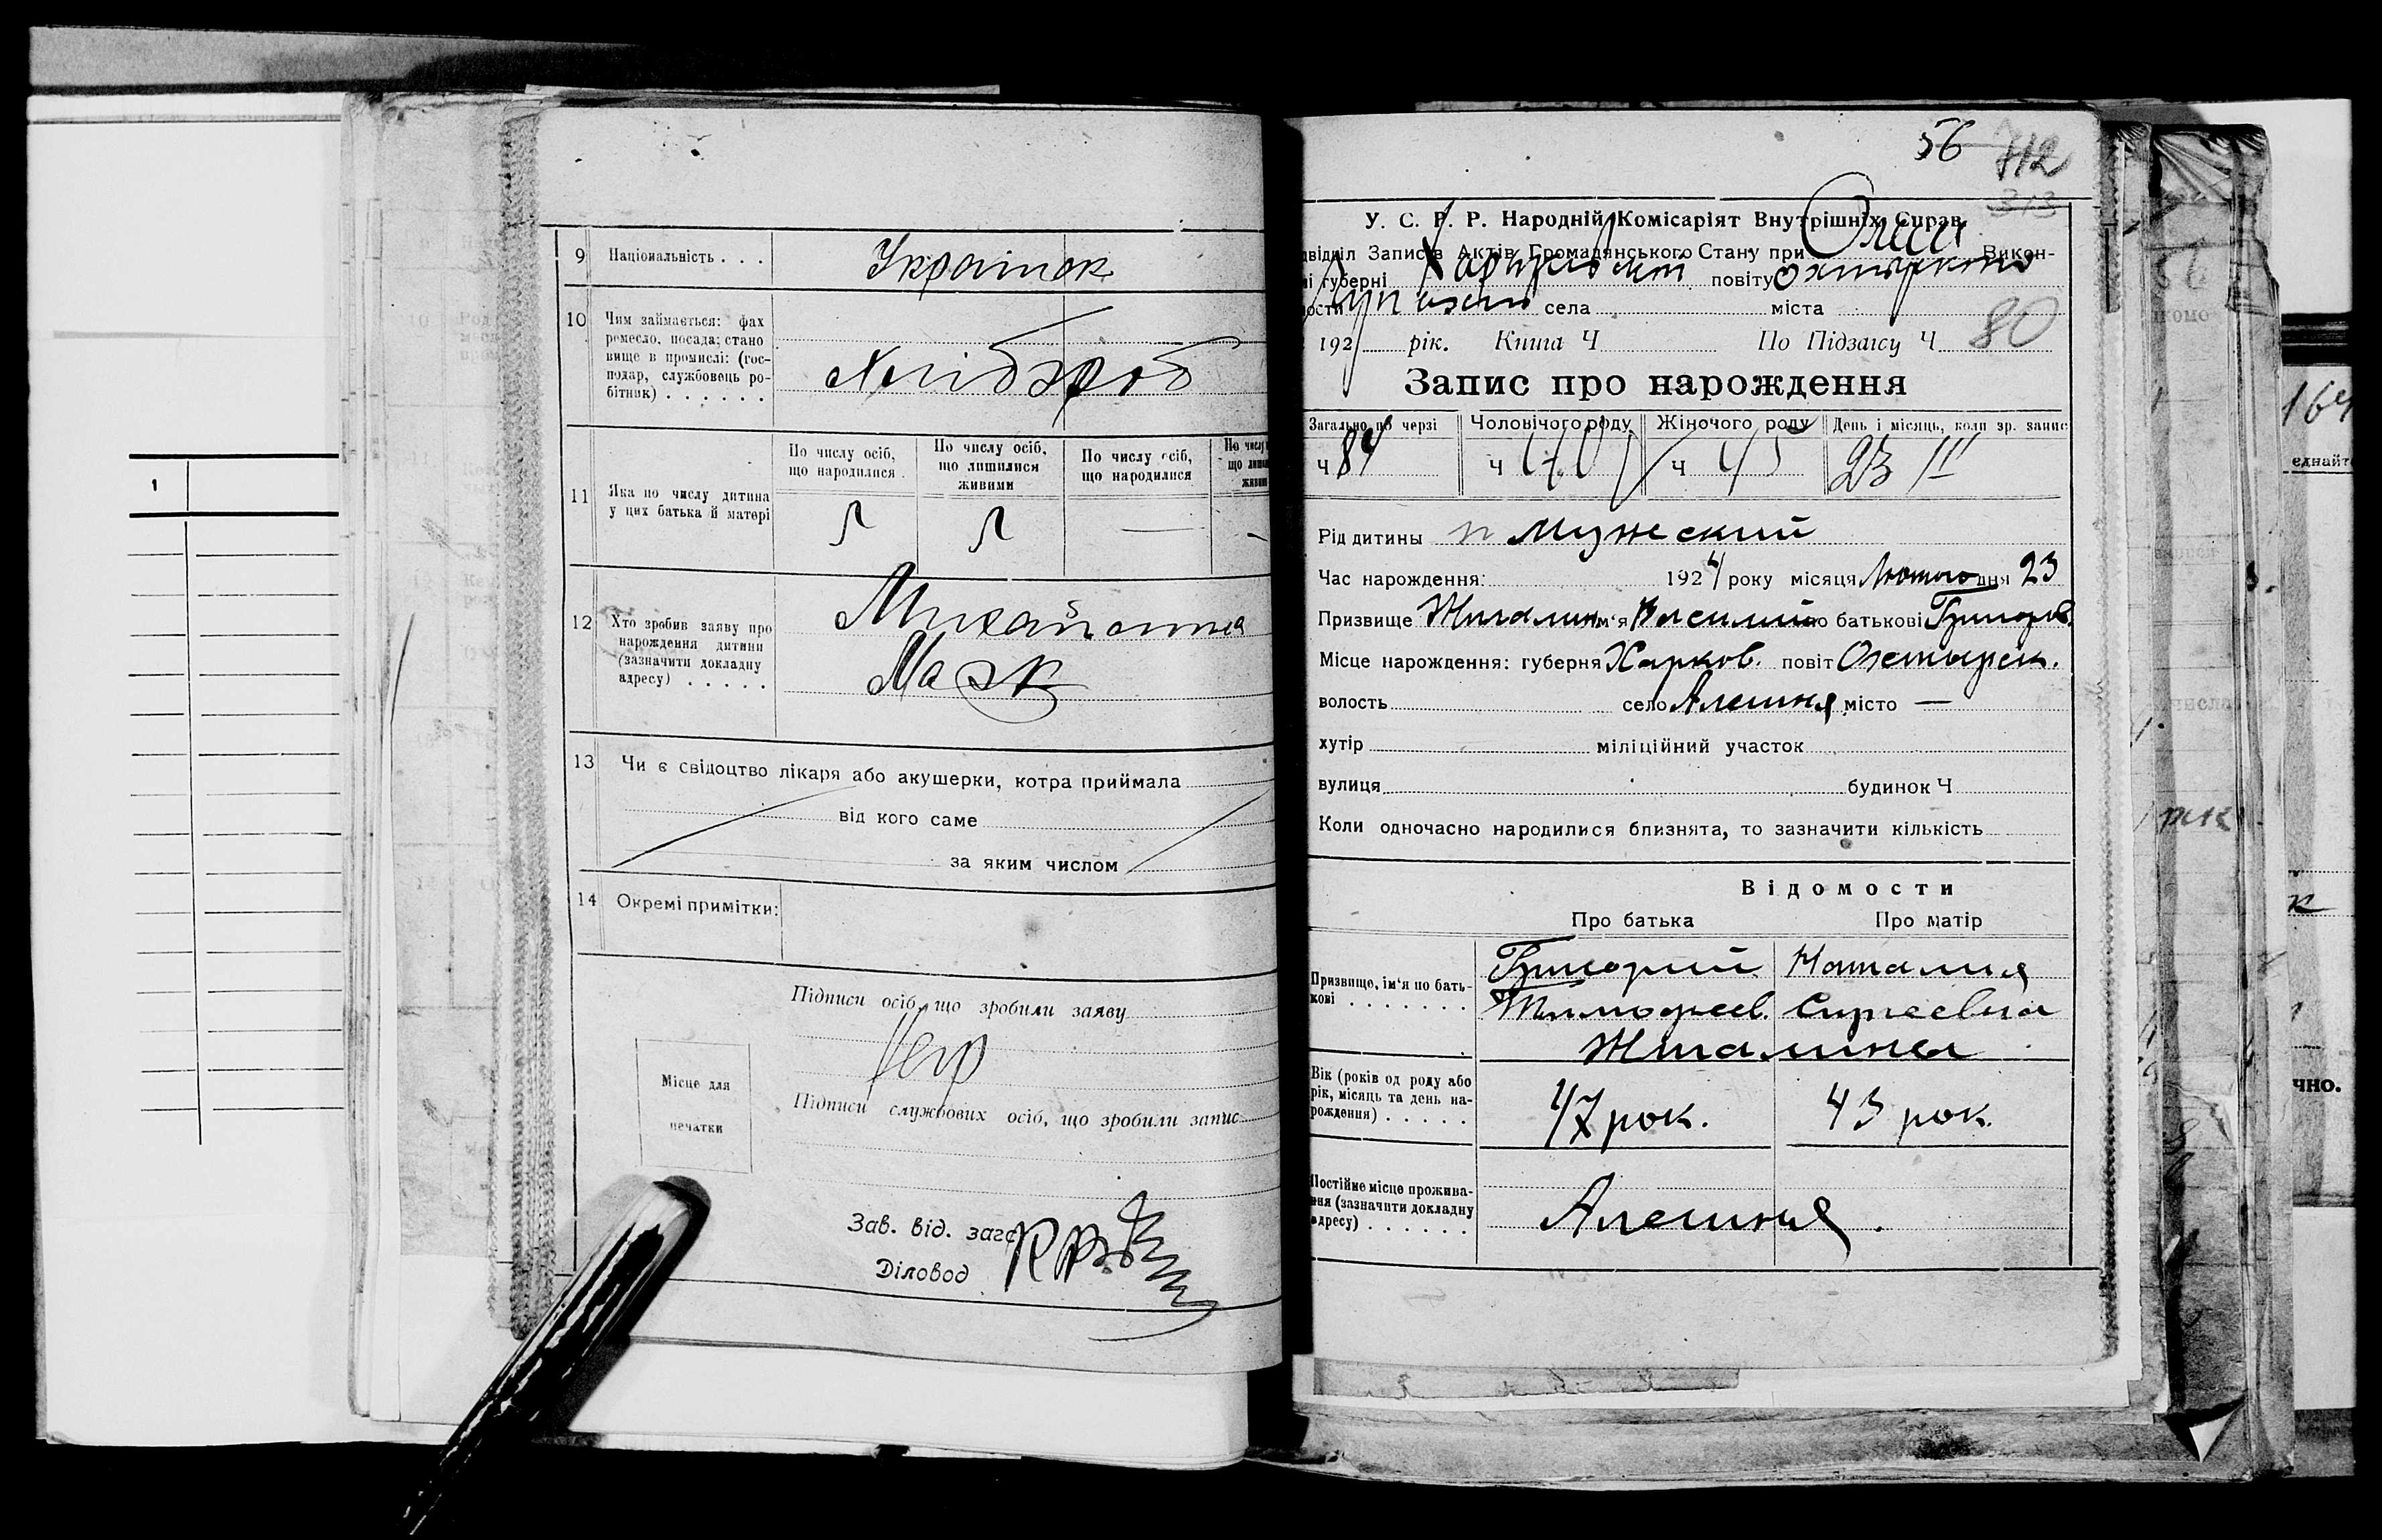 9 Національність . . . Українок
10 Чим займається: фах
ремесло, посада; стано
вище в промислі: (гос-
подар, службовець ро-
бітник) . . . . . . Хлібороб
11 Яка по числу дитина
у цих батька й матері
По числу осіб,
що народилися
По числу осіб,
що лишилися
живими
По числу осіб,
що народилися
—
12 Хто зробив заяву про
нарождення дитини
(зазначити докладну
адресу) . . . . .
13 Чи є свідоцтво лікаря або акушерки, котра приймала
від кого саме
за яким числом
14 Окремі примітки:
Підписи осіб, що зробили заяву
Місце для
печатки
Підписи службових осіб, що зробили запис
Зав. від. загс
Діловод
1
56
712
313
У. С. Р. Р. Народній Комісаріят Внутрішніх Справ
відділ Записів Актів Громадянського Стану при Викон-
губерні Харківській повіту Охтиркого
села міста
192 рік. Книга Ч По Підзагсу Ч 80
Запис про нарождення
Загально по черзі Чоловічого роду Жіночого роду День і місяць, коли зр. запис
Ч 84 Ч Ч 45 23 III
Рід дитины Мужеский
Час нарождення: 1924 року місяця Лютого дня 23
Призвище Жигалин ім'я Василий по батькові Григоров.
Місце нарождення: губерня Харков. повіт Охтырск.
волость село Алешня місто —
хутір міліційний участок
вулиця будинок Ч
Коли одночасно народилися близнята, то зазначити кількість
Відомости
Про батька Про матір
Призвище, ім'я по бать-
кові . . . . . . .
Григорий Наталия
Тимофеев. Сергеевна
Вік (років од роду або
рік, місяць та день на-
рождення) . . . . .
47 рок. 43 рок.
Постійне місце прожива-
ння (зазначити докладну
адресу) . . . . . .
Алешня.
164
чно.